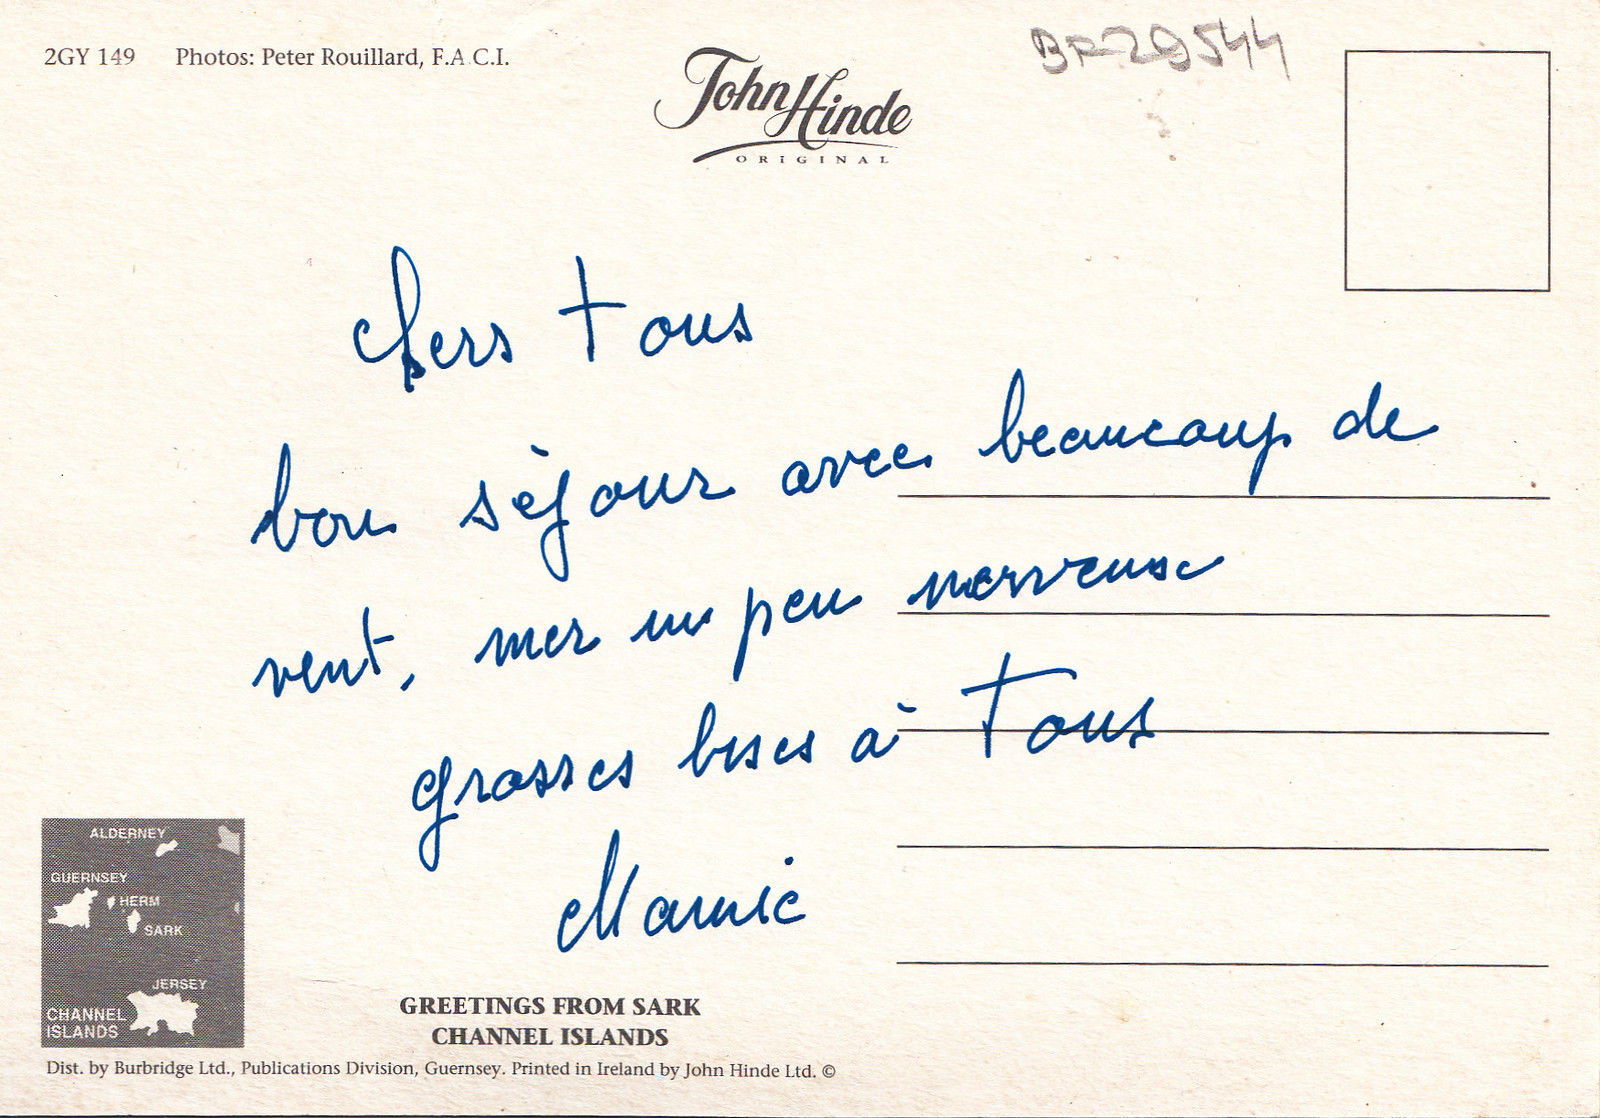 2GY 149 Photos: Peter Rouillard, F.A.C.I.
BF29544
John Hinde
ORIGINAL
Chers tous
bon séjour avec beaucoup de
vent, mer un peu nerveuse
grosses bises à tous
Mamie
ALDERNEY
GUERNSEY
HERM
SARK
JERSEY
CHANNEL
ISLANDS
GREETINGS FROM SARK
CHANNEL ISLANDS
Dist. by Burbridge Ltd., Publications Division, Guernsey. Printed in Ireland by John Hinde Ltd. ©